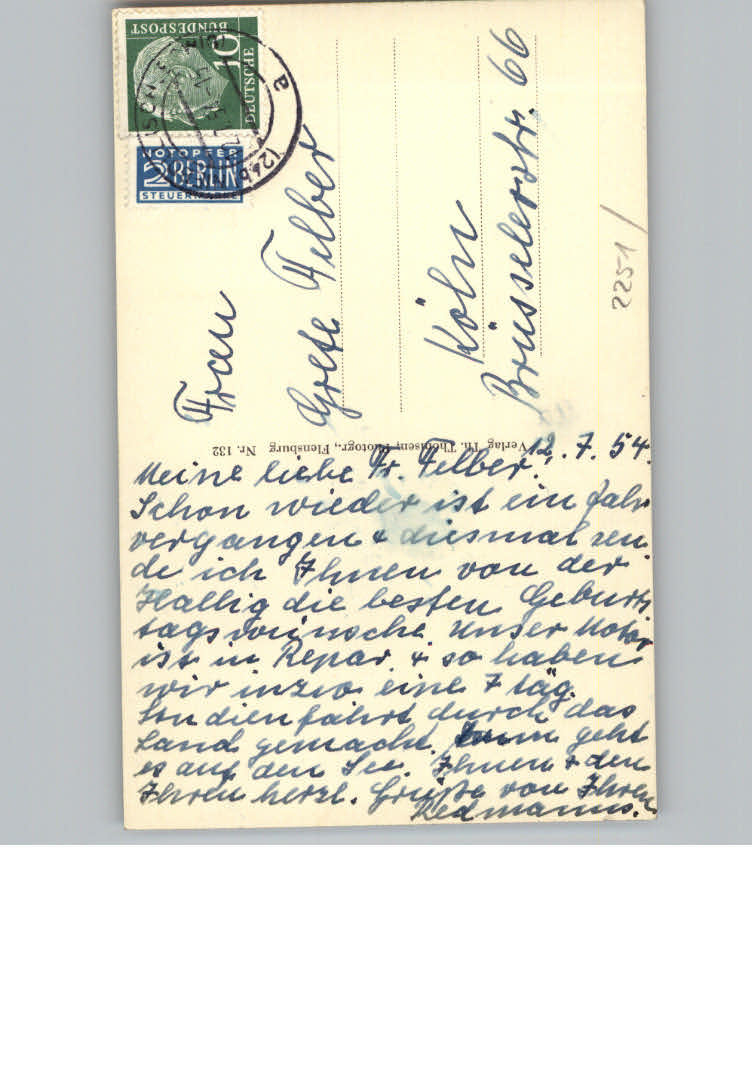 DEUTSCHE
BUNDESPOST
10
(24b)
a
NOTOPFER
2 BERLIN
STEUERMARKE
Frau
Grete Felber
Köln
Brüsselerstr. 66
2251/
Verlag Th. Thomsen, Photogr., Flensburg Nr. 132
12.7.54.
Meine liebe Fr. Felber.
Schon wieder ist ein Jahr
vergangen + diesmal sen
de ich Ihnen von der
Hallig die besten Geburts
tagswünsche. Unser Motor
ist in Repar. + so haben
wir inzw. eine 7 täg.
Studienfahrt durch das
Land gemacht. geht
es auf den See. Ihnen + den
Ihren herzl. Grüße von Ihren
Redmanns.